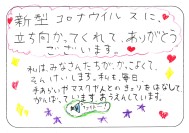 新型コロナウイルスに、
立ち向かってくれて、ありがとう
ございます。
私は、みなさんたちが、かっこよくて、
そんけいします。私も、毎日、
手あらいやマスクや人とのきょりをはなして
がんばっています。あうえんしています。